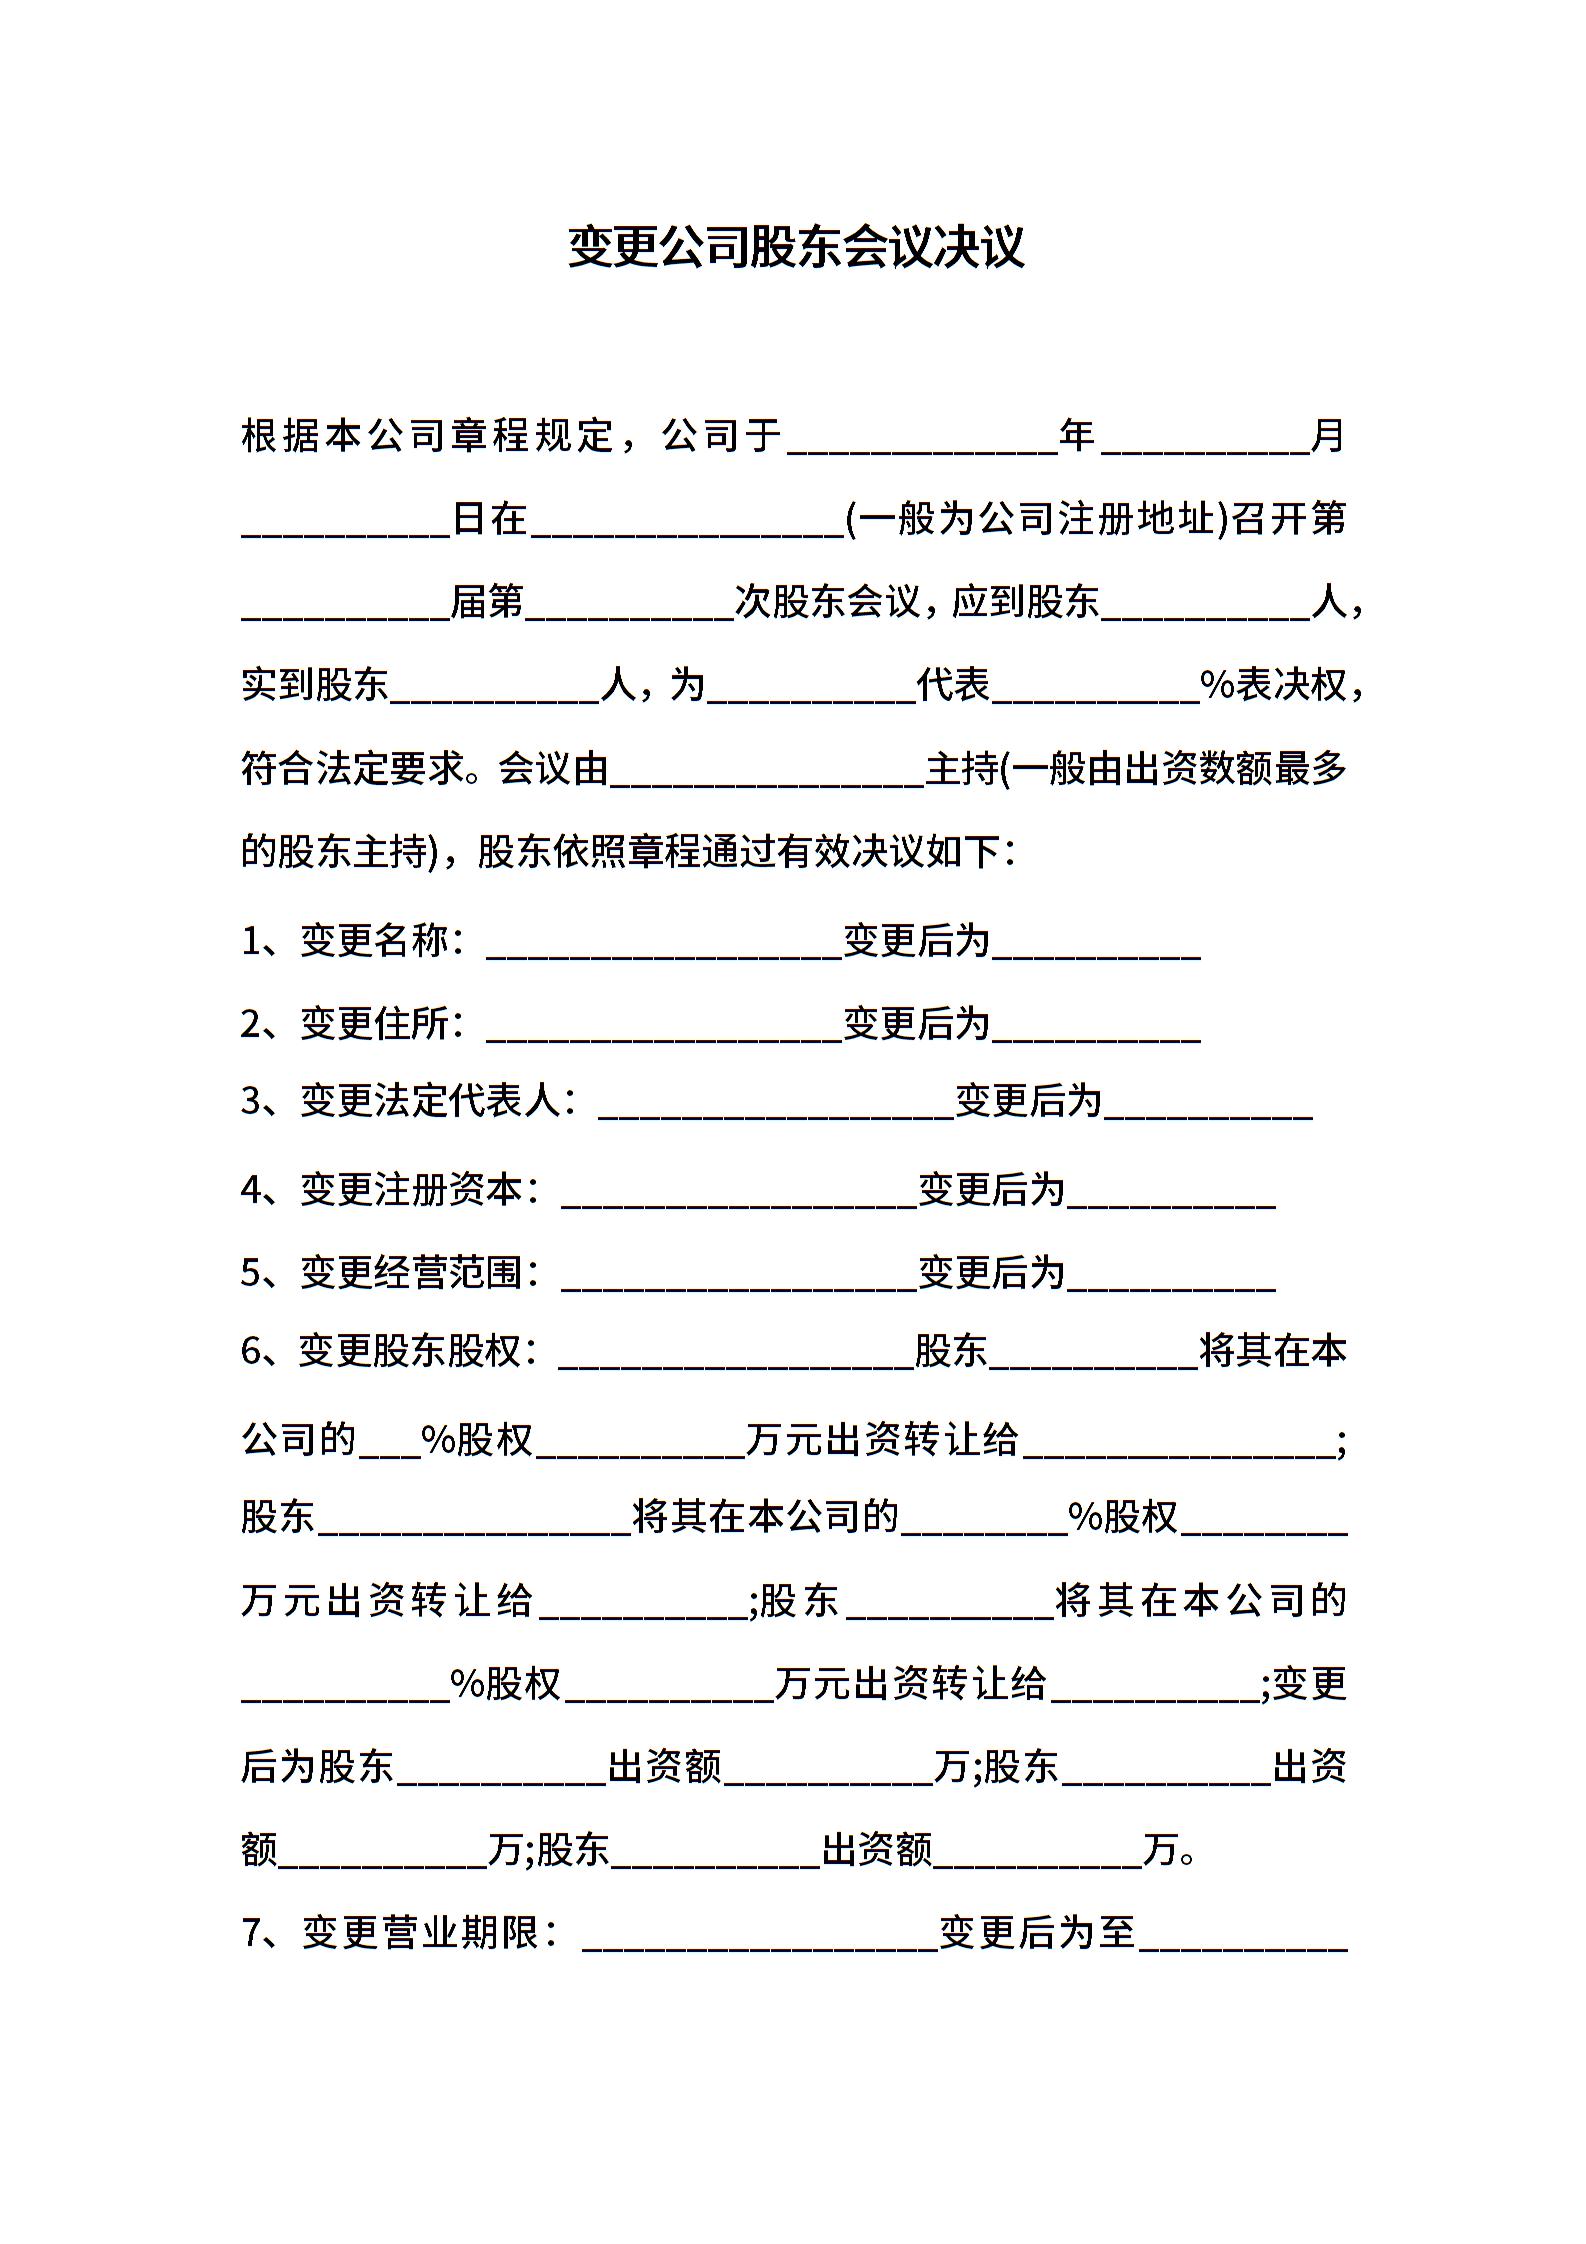 变更公司股东会议决议
根据本公司章程规定，公司于_____________年__________月
__________日在_______________(一般为公司注册地址)召开第
__________届第__________次股东会议，应到股东__________人，
实到股东__________人，为__________代表__________%表决权，
符合法定要求。会议由_______________主持(一般由出资数额最多
的股东主持)，股东依照章程通过有效决议如下：
1、变更名称：_________________变更后为__________
2、变更住所：_________________变更后为__________
3、变更法定代表人：_________________变更后为__________
4、变更注册资本：_________________变更后为__________
5、变更经营范围：_________________变更后为__________
6、变更股东股权：_________________股东__________将其在本
公司的___%股权__________万元出资转让给_______________;
股东_______________将其在本公司的________%股权________
万元出资转让给__________;股东__________将其在本公司的
__________%股权__________万元出资转让给__________;变更
后为股东__________出资额__________万;股东__________出资
额__________万;股东__________出资额__________万。
7、变更营业期限：_________________变更后为至__________